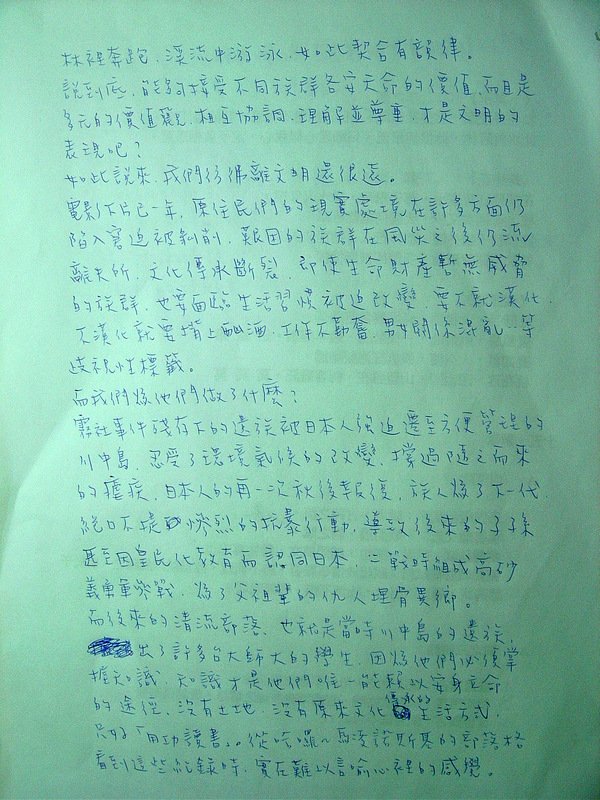 林裡奔跑，溪流中游泳，如此契合有韻律。
說到底，能夠接受不同族群各安天命的價值，而且是
多元的價值觀，相互協調，理解並尊重，才是文明的
表現吧？
如此說來，我們彷彿離文明還很遠。
電影下片已一年，原住民們的現實處境在許多方面仍
陷入窘迫被剝削，艱困的族群在風災之後仍流
離失所，文化傳承斷裂，即使生命財產暫無威脅
的族群，也要面臨生活習慣被迫改變，要不就漢化，
不漢化就要揹上酗酒，工作不勤奮，男女關係混亂…等
歧視性標籤。
而我們為他們做了什麼？
霧社事件殘存下的遺族被日本人強迫遷至方便管理的
川中島，忍受了環境氣候的改變，撐過隨之而來
的瘧疾，日本人的再一次秋後報復，族人為了下一代，
絕口不提慘烈的抗暴行動，導致後來的子孫
甚至因皇民化教育而認同日本，二戰時組成高砂
義勇軍參戰，為了父祖輩的仇人埋骨異鄉。
而後來的清流部落，也就是當時川中島的遺族，
出了許多台大師大的學生，因為他們必須掌
握知識，知識才是他們唯一能賴以安身立命
的途徑，沒有土地，沒有原來文化傳承的生活方式，
只好「用功讀書」。從哈囉~馬凌諾斯基的部落格
看到這些紀錄時，實在難以言喻心裡的感覺。